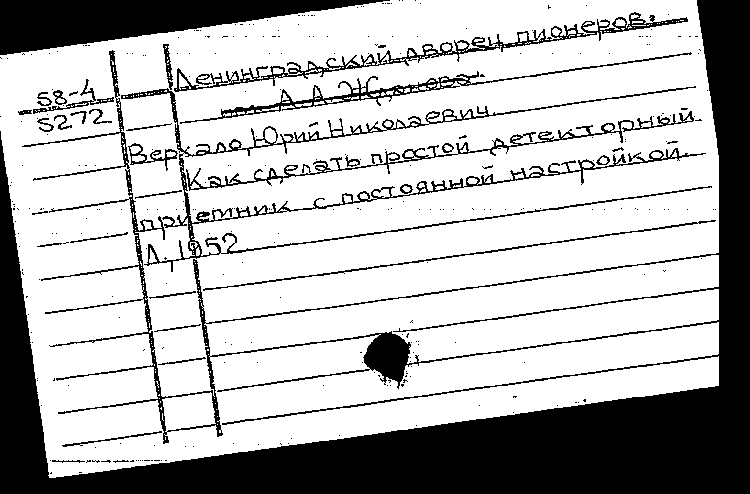 58-4
5272
Ленинградский дворец пионеров.
им. А. А. Жданова.
Верхало, Юрий Николаевич.
Как сделать простой детекторный
приемник с постоянной настройкой.
Л., 1952